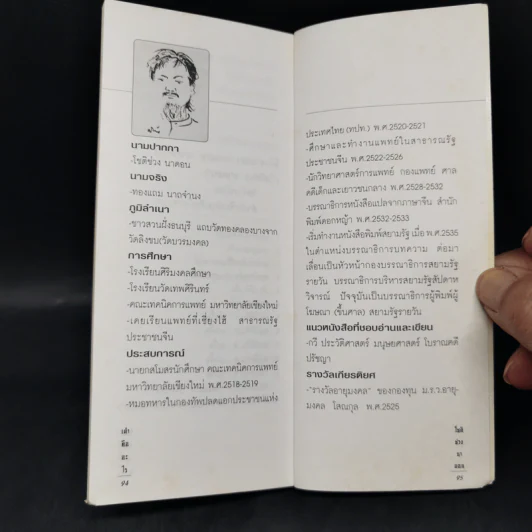 นามปากกา
-โชติช่วง นาดอน
นามจริง
-ทองแถม นาถจำนง
ภูมิลำเนา
-ชาวสวนฝั่งธนบุรี แถบวัดทองคลองบางจาก
วัดลิงขบ(วัดบวรมงคล)
การศึกษา
-โรงเรียนศิริมงคลศึกษา
-โรงเรียนวัดเทพศิรินทร์
-คณะเทคนิคการแพทย์ มหาวิทยาลัยเชียงใหม่
-เคยเรียนแพทย์ที่เซี่ยงไฮ้ สาธารณรัฐ
ประชาชนจีน
ประสบการณ์
-นายกสโมสรนักศึกษา คณะเทคนิคการแพทย์
มหาวิทยาลัยเชียงใหม่ พ.ศ.2518-2519
-หมอทหารในกองทัพปลดแอกประชาชนแห่ง
เล่า
จื๊อ
ไร
๙๔
ประเทศไทย (ทปท.) พ.ศ.2520-2521
-ศึกษาและทำงานแพทย์ในสาธารณรัฐ
ประชาชนจีน พ.ศ.2522-2526
-นักวิทยาศาสตร์การแพทย์ กองแพทย์ ศาล
คดีเด็กและเยาวชนกลาง พ.ศ.2528-2532
-บรรณาธิการหนังสือแปลจากภาษาจีน สำนัก
พิมพ์ดอกหญ้า พ.ศ.2532-2533
-เริ่มทำงานหนังสือพิมพ์สยามรัฐ เมื่อ พ.ศ.2535
ในตำแหน่งบรรณาธิการบทความ ต่อมา
เลื่อนเป็นหัวหน้ากองบรรณาธิการสยามรัฐ
รายวัน บรรณาธิการบริหารสยามรัฐสัปดาห
วิจารณ์ ปัจจุบันเป็นบรรณาธิการผู้พิมพ์ผู้
โฆษณา (ขึ้นศาล) สยามรัฐรายวัน
แนวหนังสือที่ชอบอ่านและเขียน
-กวี ประวัติศาสตร์ มนุษยศาสตร์ โบราณคดี
ปรัชญา
รางวัลเกียรติยศ
-"รางวัลอายุมงคล" ของกองทุน ม.ร.ว.อายุ-
มงคล โสณกุล พ.ศ.2525
โชติ
ช่วง
นา
ดอน
๙๕